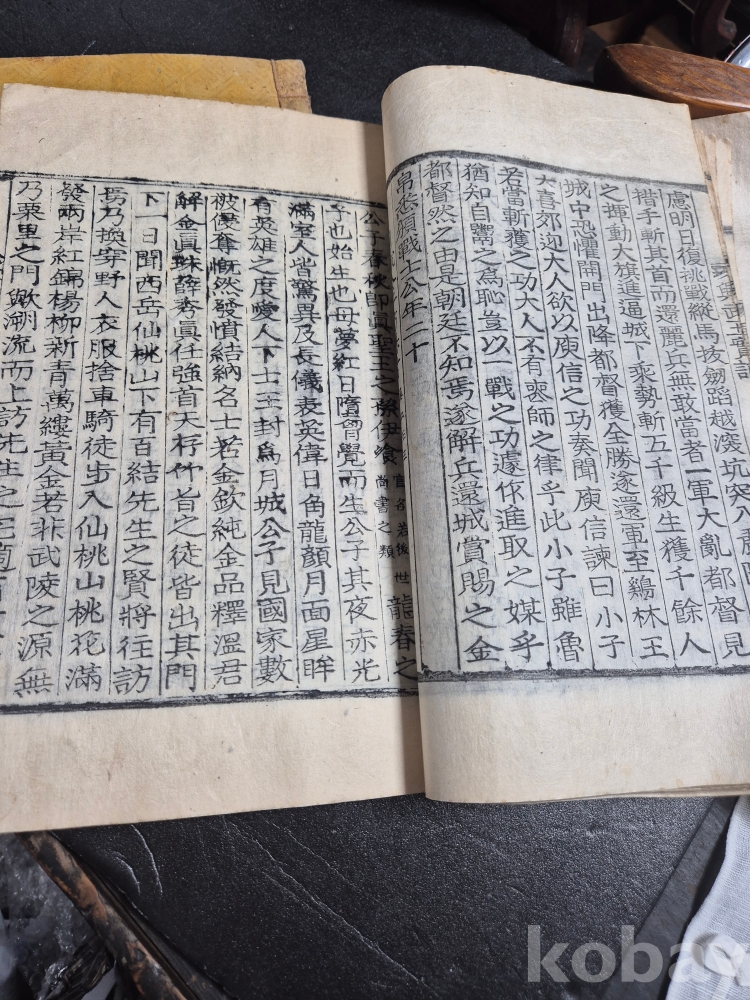 慮明日復挑戰縱馬拔劒蹈越淩坑突入
措手斬其首而還麗兵無敢當者一軍大亂都督見
之揮動大旗進逼城下乘勢斬五千級生獲千餘人
城中恐懼開門出降都督獲全勝遂還軍至鷄林王
大喜郊迎大人欲以庾信之功奏聞庾信諫曰小子
若當斬獲之功大人不有喪師之律乎此小子雖魯
猶知自鬻之爲恥豈以一戰之功遽作進取之媒乎
都督然之由是朝廷不知焉遂解兵還城賞賜之金
帛悉頒戰士公年二十
公子春秋卽眞聖王之孫伊飡官名若後世尙書之類龍春之
子也始生也母夢紅日墮胷覺而生公子其夜赤光
滿室人皆驚異及長儀表英偉日角龍顔月面星眸
有英雄之度愛人下士王封爲月城公子見國家數
被侵奪慨然發憤結納名士若金欽純金品釋溫君
解金眞珠薛秀眞任強首天存仲首之徒皆出其門
下一日聞西岳仙桃山下有百結先生之賢將往訪
焉乃換穿野人衣服捨車騎徒步入仙桃山桃花滿
發兩岸紅錦楊柳新靑萬縷黃金若非武陵之源無
乃栗里之門歟溯流而上訪先生之宅
kobay